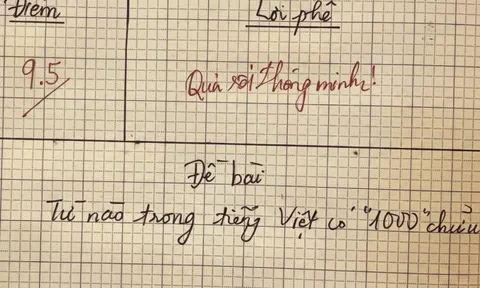 Điểm Lời phê
9.5 Quá rồi thông minh!
Đề bài
Từ nào trong tiếng Việt có "1000" chữ